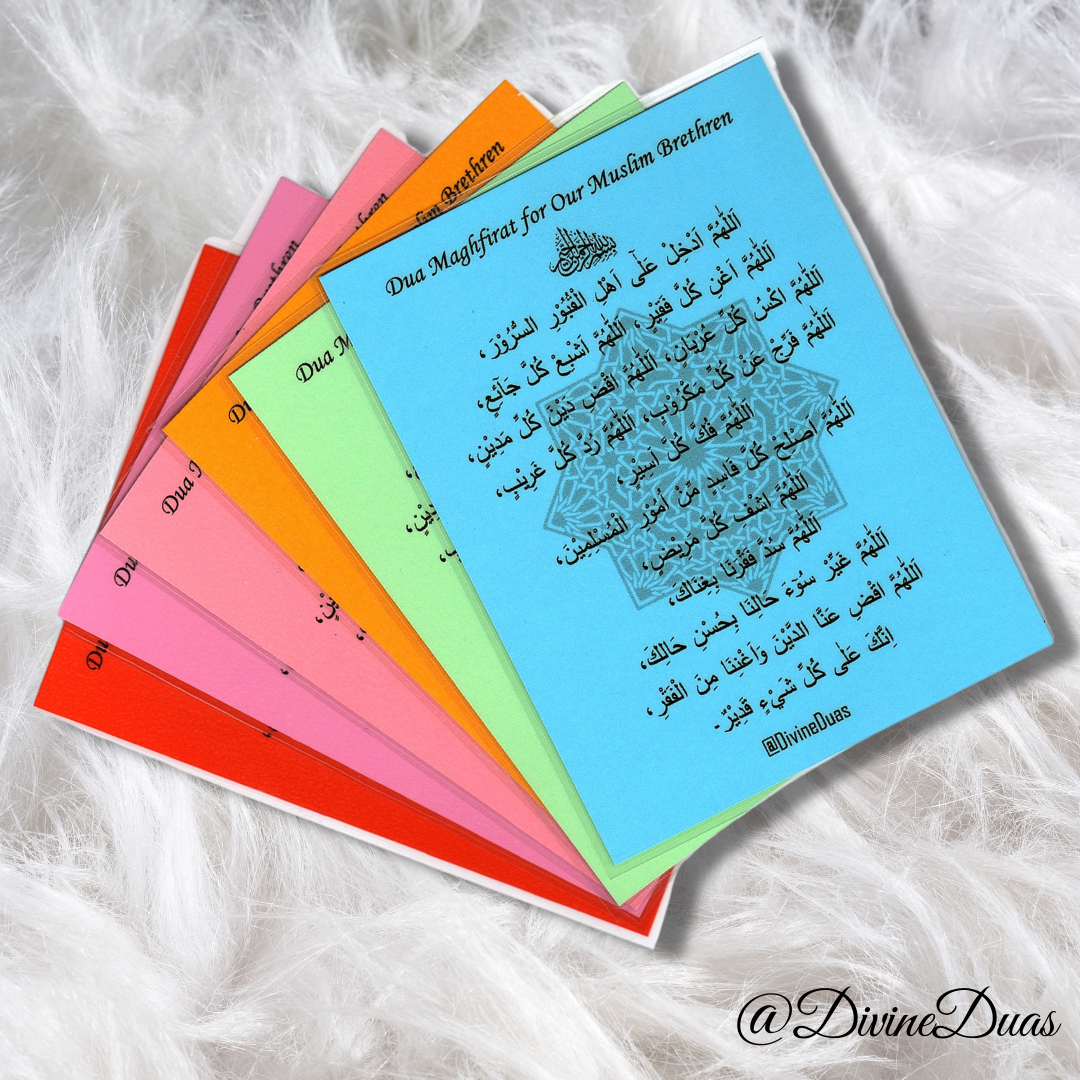 Dua Maghfirat for Our Muslim Brethren
بسم الله الرحمن الرحيم
اَللّٰهُمَّ اَدْخِلْ عَلٰٓى اَهْلِ الْقُبُوْرِ السُّرُوْرَ،
اَللّٰهُمَّ اَغْنِ كُلَّ فَقِيْرٍ، اَللّٰهُمَّ اَشْبِعْ كُلَّ جَآئِعٍ،
اَللّٰهُمَّ اكْسُ كُلَّ عُرْيَانٍ، اَللّٰهُمَّ اقْضِ دَيْنَ كُلِّ مَدِيْنٍ،
اَللّٰهُمَّ فَرِّجْ عَنْ كُلِّ مَكْرُوْبٍ، اَللّٰهُمَّ رُدَّ كُلَّ غَرِيْبٍ،
اَللّٰهُمَّ فُكَّ كُلَّ اَسِيْرٍ،
اَللّٰهُمَّ اَصْلِحْ كُلَّ فَاسِدٍ مِّنْ اُمُوْرِ الْمُسْلِمِيْنَ،
اَللّٰهُمَّ اشْفِ كُلَّ مَرِيْضٍ،
اَللّٰهُمَّ سُدَّ فَقْرَنَا بِغِنَاكَ،
اَللّٰهُمَّ غَيِّرْ سُوْٓءَ حَالِنَا بِحُسْنِ حَالِكَ،
اَللّٰهُمَّ اقْضِ عَنَّا الدَّيْنَ وَاَغْنِنَا مِنَ الْفَقْرِ،
اِنَّكَ عَلٰى كُلِّ شَيْءٍ قَدِيْرٌ۔
@DivineDuas
Dua M
Brethren
Dua
@DivineDuas